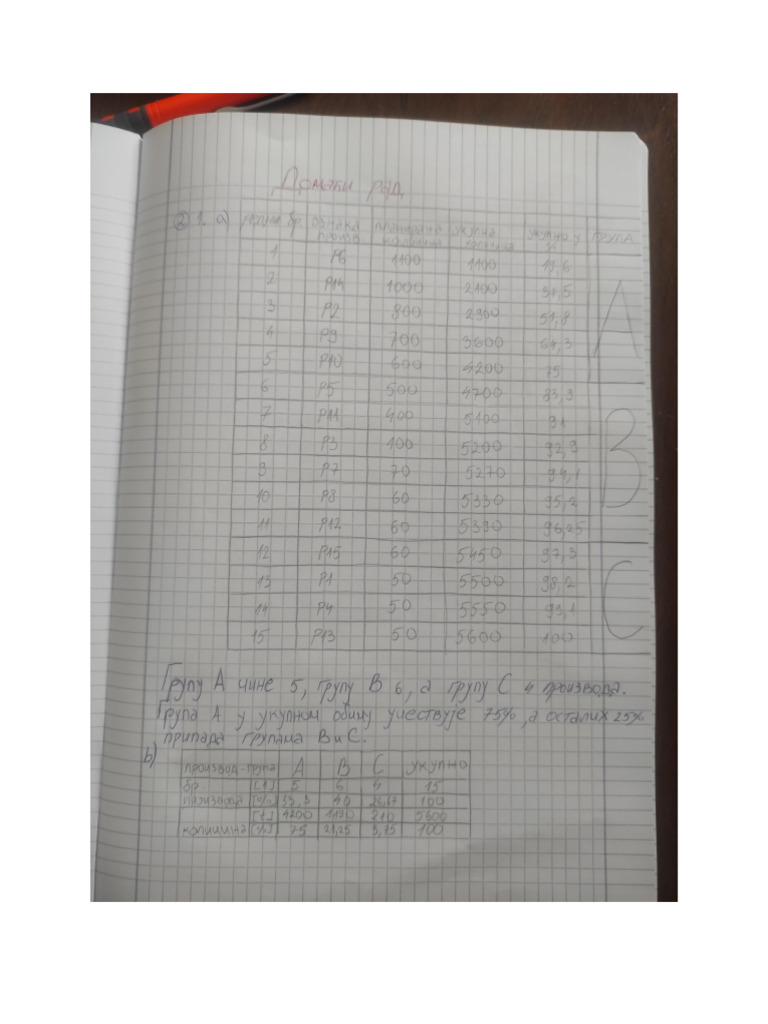 Домаћи рад
② 1. a) редни бр. ознака произв планирана количина укупна количина укупно у % ГРУПА
1 P6 1100 1100 19,6
2 P14 1000 2100 37,5
3 P2 800 2900 51,8 A
4 P9 700 3600 64,3
5 P10 600 4200 75
6 P5 500 4700 83,9
7 P11 400 5100 91
8 P3 100 5200 92,9 B
9 P7 70 5270 94,1
10 P8 60 5330 95,2
11 P12 60 5390 96,25
12 P15 60 5450 97,3
13 P1 50 5500 98,2 C
14 P4 50 5550 99,1
15 P13 50 5600 100
Групу A чине 5, групу B 6, а групу C 4 производа.
Група A у укупном обиму учествује 75%, а осталих 25%
припада групама B и C.
b)
производ-група A B C укупно
бр. [1] 5 6 4 15
производа [%] 33,3 40 26,67 100
[t] 4200 1190 210 5600
количина [%] 75 21,25 3,75 100